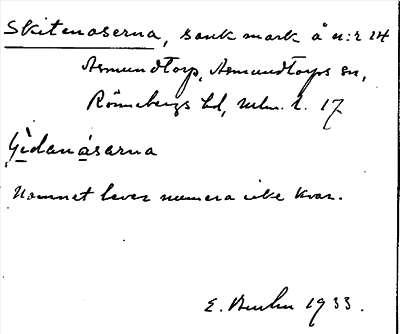 Skitenaserna, sank mark å n:r 14
Asmundtorp, Asmundtorps sn,
Rönnebergs hd, Mlm. l. 17
Namnet lever numera icke kvar.
E. 1933.